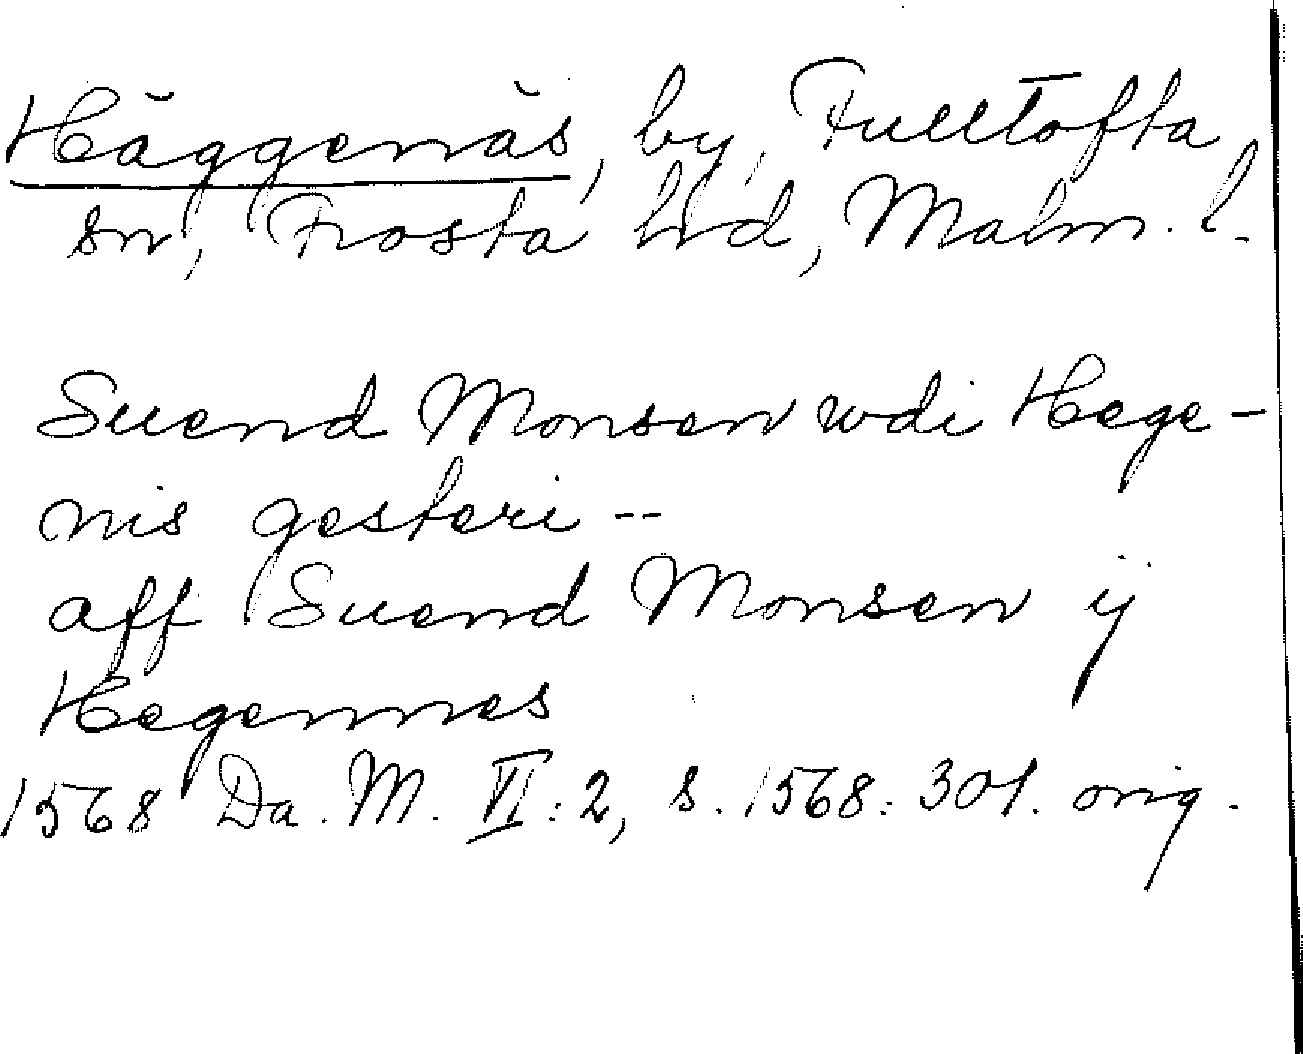 Häggenäs, by, Fulltofta
sn, Frosta hd, Malm. l.
Suend Monsen wdi Hege-
nis gesteri --
aff Suend Monsen ij
Hegennes
1568 Da. M. VI: 2, s. 1568: 301. orig.